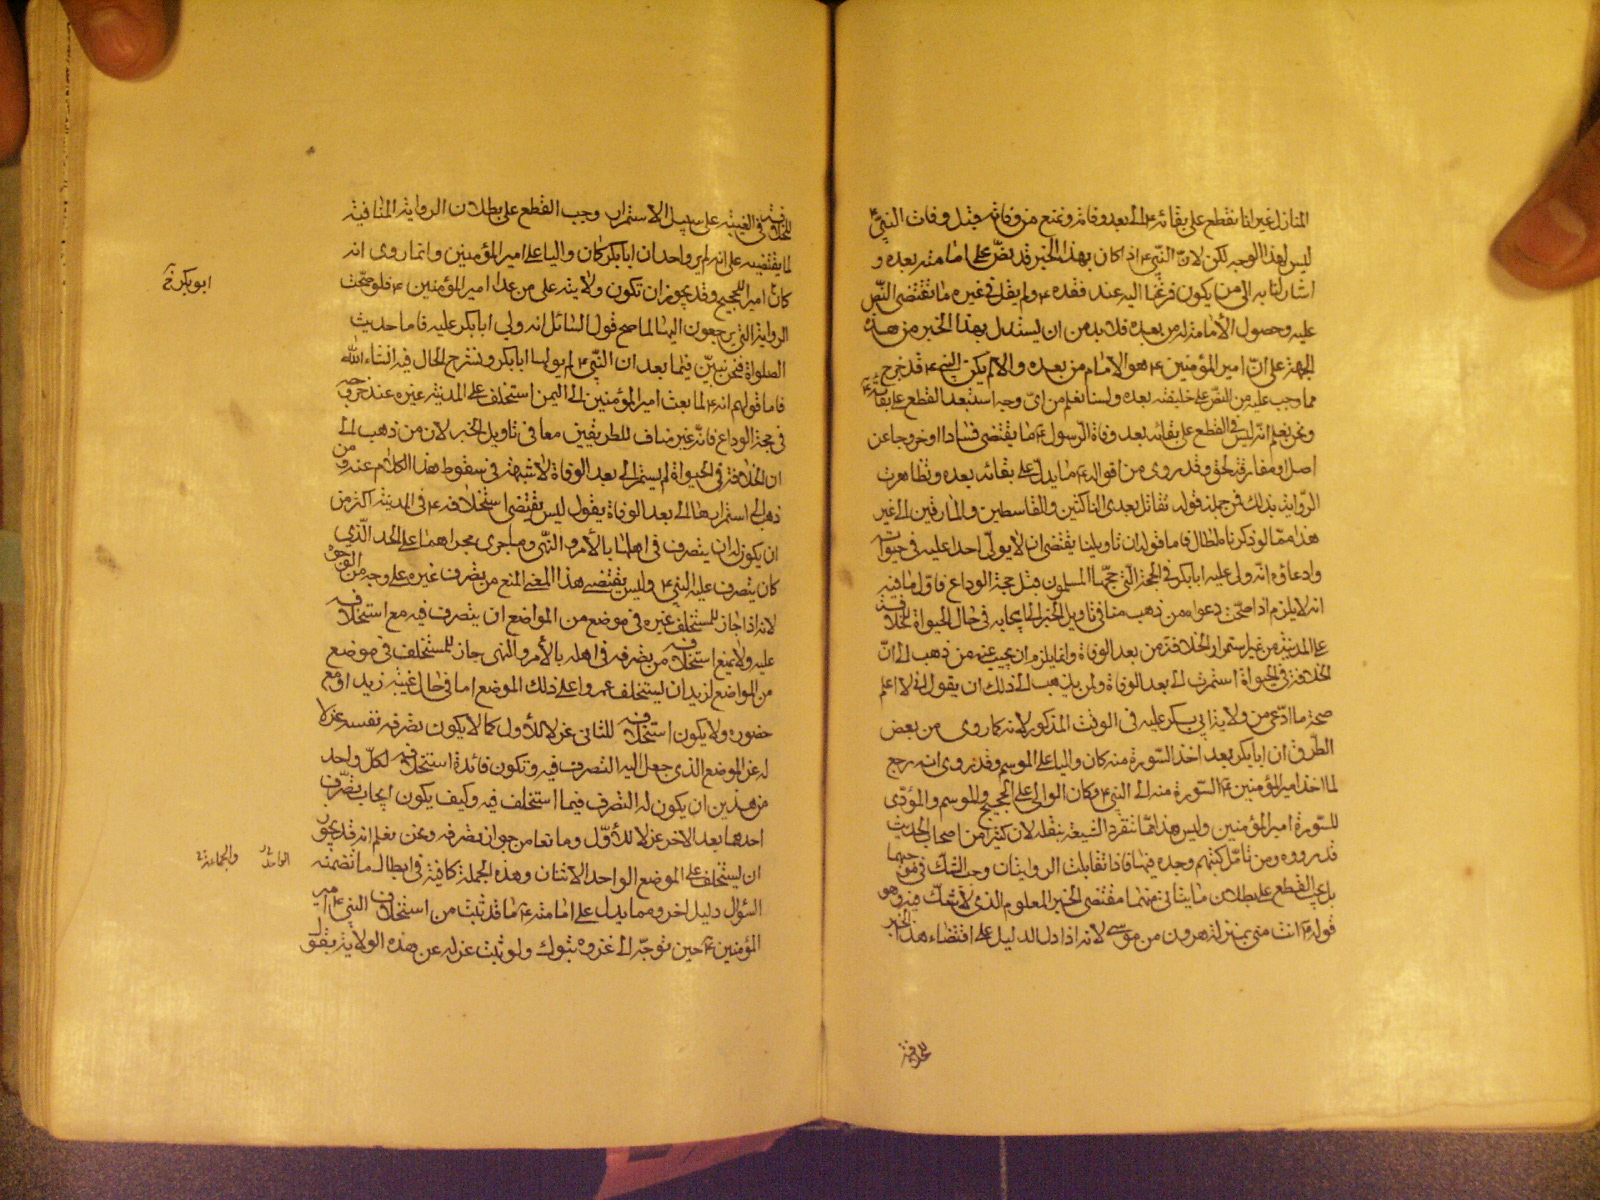 المنازل غير انا نقطع على بقائه ع الى بعد وفاته ونمنع من وفاته قبل وفات النبيّ ع
ليس لهذا الوجه لكن لانّ النّبي ع اذا كان بهذا الخبر قد نصّ على امامته بعده و
اشار لنا به الى من يكون فزعنا اليه عند فقده ع ولم يقل في غيره ما يقتضى النّص
عليه وحصول الأمامة له من بعده فلا بد من ان يستدل بهذا الخبر من هذه
الجهة على انّ امير المؤمنين ع هو الامام من بعده والا لم يكن النبي ع قد خرج
مما وجب عليه من النصّ على خليفته بعده ولسنا نعلم من اىّ وجه استبعد القطع على بقائه ع
ونحن نعلم انه ليس في القطع على بقائه بعد وفاة الرّسول ع ما يقتضى فسادا او خروجا عن
اصل او مفارقة لحق وقد روى من اقواله ع ما يدلّ على بقائه بعده وتظاهرت
الرّواية بذلك فمن جملته قوله تقاتل بعدى الناكثين والقاسطين والمارقين الى غير
هذا ممّا لو ذكرناه لطال فاما قوله ان تاويلنا يقتضى ان لا يولّى احدا عليه في حيوته
وادعاؤه انه ولى عليه ابا بكر في الحجة الّتي حجّها المسلمون قبل حجة الوداع فاول ما فيه
انه لا يلزم اذا صحّت دعواه من ذهب منا في تاويل الخبر الى ايجابه في حال الحيواة الخلافة
على المدينة من غير استمرار الخلافة من بعد الوفاة وانما يلزم ان يجيب عنه من ذهب الى انّ
الخلافة في الحيواة استمرت الى بعد الوفاة ولمن يذهب الى ذلك ان يقول انى لا اعلم
صحة ما ادّعي من ولاية ابي بكر عليه فى الوقت المذكور لانه كما روى من بعض
الطرق ان ابا بكر بعد اخذ السّورة منه كان واليا على الموسم وقد روى انه رجع
لما اخذ امير المؤمنين ع السّورة منه الى النبي ع وكان الوالى على الحجيج والموسم والمؤدّى
للسّورة امير المؤمنين وليس هذا ممّا تتفرد الشيعة بنقله لان كثيرا من اصحاب الحديث
قد رووه ومن تامّل كتبهم وجده فيها فاذا تقابلت الروايتان وجب الشّك في موجبهما
بل يجب القطع على بطلان ما ينافى منهما مقتضى الخبر المعلوم الذى لا يشكّ فيه وهو
قوله ع انت منى بمنزلة هرون من موسى لانه اذا دل الدليل على اقتضاء هذا الخبر
للخلافة
للخلافة في الغيبة على سبيل الاستمرار وجب القطع على بطلان الرواية المنافية
لما يقتضيه على انه لم يرو احد ان ابا بكر كان واليا على امير المؤمنين وانما روى انه
كان امير الحجيج وقد يجوز ان تكون ولايته على من عدا امير المؤمنين ع فلو صحّت
ابو بكر
الرواية التي يرجعون اليها لما صح قول السّائل انه ولى ابا بكر عليه فاما حديث
الصلواة فنحن نبيّن فيما بعد ان النّبي ع لم يولها ابا بكر ونشرح الحال فيه انشاء اللّه
فاما قولهم انه ع لما بعث امير المؤمنين الى اليمن استخلف على المدينة غيره عند خروجه
في حجة الوداع فانّه غير مناف للطريقين معا في تاويل الخبر لان من ذهب الى
ان الخلافة في الحيواة لم يستمر الى بعد الوفاة لا شبهة في سقوط هذا الكلام عنه ومن
ذهب الى استمرارها الى بعد الوفاة يقول ليس يقتضى استخلافه ع في المدينة اكثر من
ان يكون له ان يتصرف في اهلها بالأمر والنّهى وما جرى مجراهما على الحد الّذي
كان يتصرف عليه النبي ع وليس يقتضى هذا المعنى المنع من تصرف غيره على وجه من الوجوه
لانه اذا جاز للمستخلف غيره في موضع من المواضع ان يتصرف فيه مع استخلافه
عليه ولا يمنع استخلافه من تصرفه في اهله بالأمر والنهى جاز للمستخلف في موضع
من المواضع لزيد ان يستخلف عمروا على ذلك الموضع اما في حال غيبة زيد او مع
حضوره ولا يكون استخلافه للثانى عزلا للأول كما لا يكون تصرفه نفسه عزلا
له عن الموضع الذى جعل اليه التصرف فيه وتكون فائدة استخلافه لكلّ واحد
من هذين ان يكون له التصرف فيما استخلف فيه وكيف يكون ايجاب تصرّف
احدهما بعد الاخر عزلا للأوّل ومانعا من جواز تصرفه ونحن نعلم انه قد يجوز
ان يستخلف على الموضع الواحد الاثنان وهذه الجملة كافية في ابطال ما تضمنه
والجماعة
السؤال دليل اخر ومما يدل على امامته ع ما قد ثبت من استخلاف النبي ع امير
المؤمنين ع حين توجّه الى غزوة تبوك ولو ثبت عزله عن هذه الولاية بقول